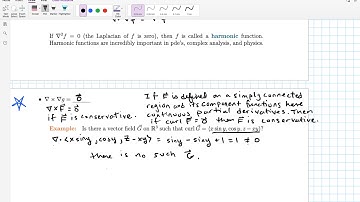 If ∇²f = 0 (the Laplacian of f is zero), then f is called a harmonic function.
Harmonic functions are incredibly important in pde's, complex analysis, and physics.
• ∇ × ∇g = 0⃗
∇ × F⃗ = 0⃗
if F⃗ is conservative.
If F⃗ is defined on a simply connected
region and its component functions have
continuous partial derivatives. Then
if curl F⃗ = 0⃗ then F⃗ is conservative.
Example: Is there a vector field G⃗ on R³ such that curl G⃗ = ⟨x sin y, cos y, z − xy⟩?
∇ · ⟨x sin y, cos y, z − xy⟩ = sin y − sin y + 1 = 1 ≠ 0
there is no such G⃗.